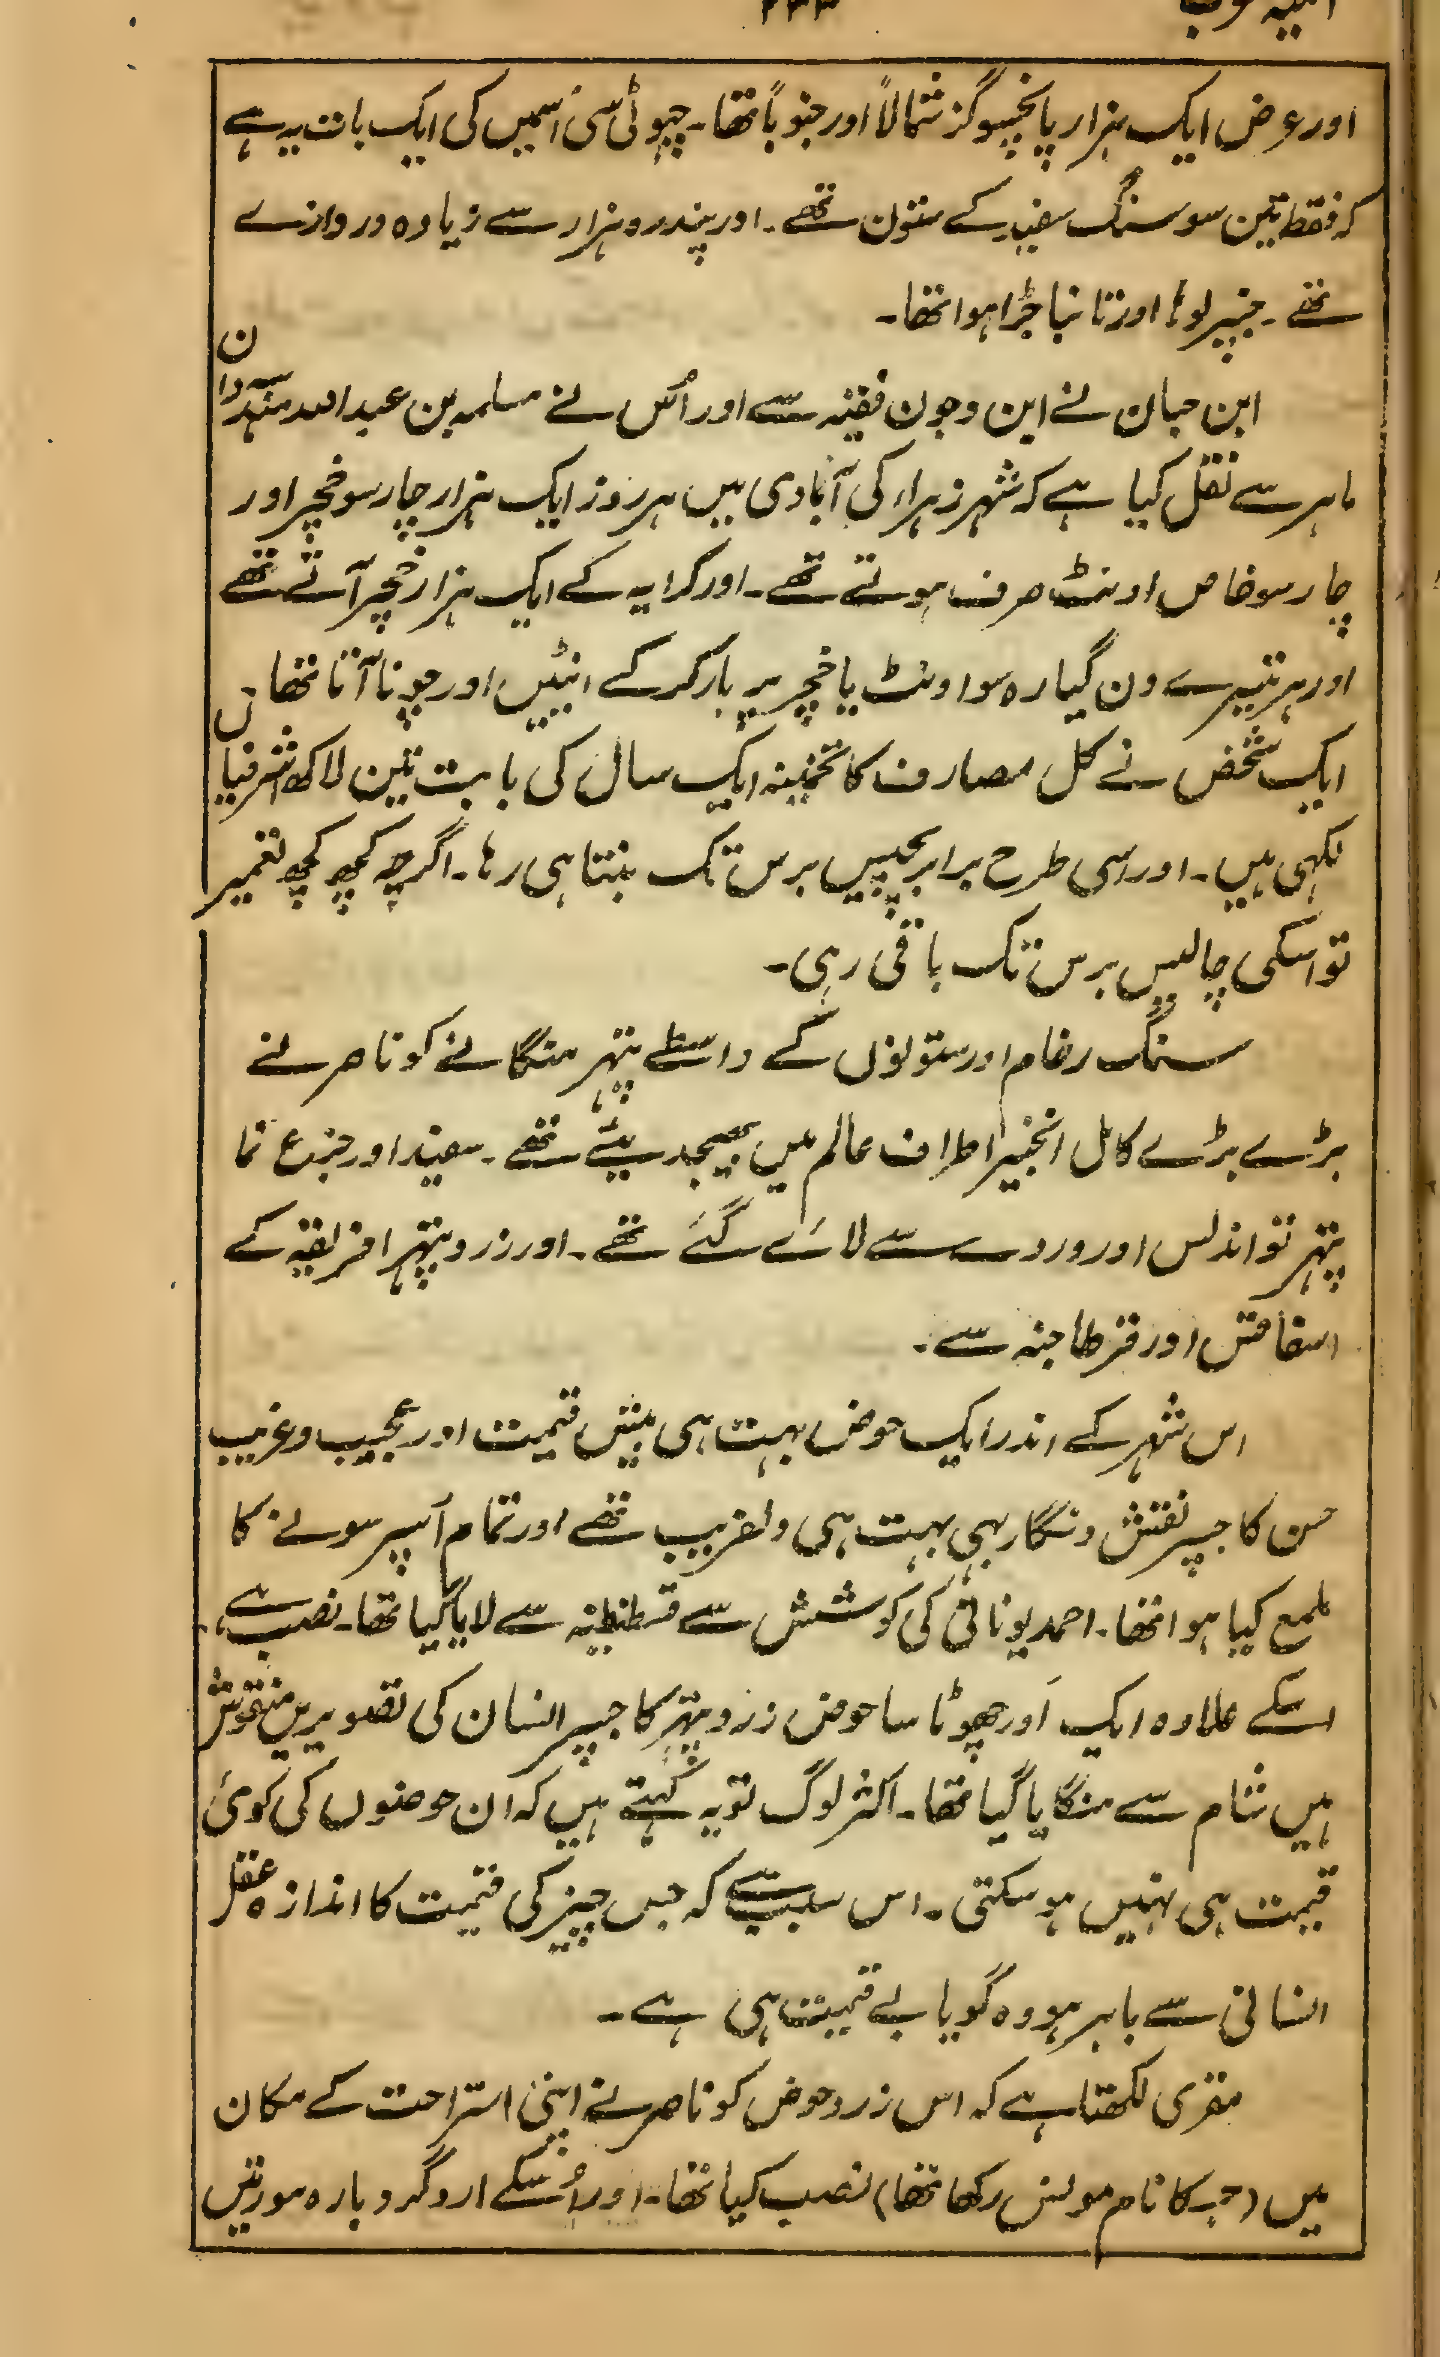 ۲۳۳
اور عرض ایک ہزار پانچسو گز شمالاً اور جنوباً تھا۔ چھوٹی سی اسمیں کی ایک بات یہ ہے
کہ فقط تین سو سنگ سفید کے ستون تھے۔ اور پندرہ ہزار سے زیادہ دروازے
تھے۔ جنپر لوہا اور تانبا جڑا ہوا تھا۔
ابن حبان نے ابن وجون فقیہ سے اور اُس نے مسلمہ بن عبداللہ مہندسان
ماہر سے نقل کیا ہے کہ شہر زہراء کی آبادی میں ہر روز ایک ہزار چار سو خچر اور
چار سو خاص اونٹ صرف ہوتے تھے۔ اور کرایہ کے ایک ہزار خچر آتے تھے
اور ہر تیسرے دن گیارہ سو اونٹ یا خچر پر بار کر کے اینٹیں اور چونا آتا تھا
ایک شخص نے کل مصارف کا تخمینہ ایک سال کی بابت تین لاکھ اشرفیاں
لکھی ہیں۔ اور اسی طرح برابر پچیس برس تک بنتا ہی رہا۔ اگرچہ کچھ کچھ تعمیر
تو اسکی چالیس برس تک باقی رہی۔
سنگ رخام اور ستونوں کے واسطے پتھر منگانے کو ناصر نے
بڑے بڑے کامل انجنیر اطراف عالم میں بھیجدیئے تھے۔ سفید اور جزع نما
پتھر تو اندلس اور وردے سے لائے گئے تھے۔ اور زرد پتھر افریقہ کے
اسفاقس اور قرطاجنہ سے۔
اس شہر کے اندر ایک حوض بہت ہی بیش قیمت اور عجیب و غریب
حسن کا جسپر نقش و نگار بھی بہت ہی دلفریب تھے اور تمام اُسپر سونے کا
ملمع کیا ہوا تھا۔ احمد یونانی کی کوشش سے قسطنطنیہ سے لایا گیا تھا۔ نصب ہے۔
اسکے علاوہ ایک اَور چھوٹا سا حوض زرد پتھر کا جسپر انسان کی تصویریں منقوش
ہیں شام سے منگایا گیا تھا۔ اکثر لوگ تو یہ کہتے ہیں کہ ان حوضوں کی کوئی
قیمت ہی نہیں ہو سکتی۔ اس سبب سے کہ جس چیز کی قیمت کا اندازہ عقل
انسانی سے باہر ہو وہ گویا بے قیمت ہی ہے۔
مقری لکھتا ہے کہ اس زرد حوض کو ناصر نے اپنی استراحت کے مکان
میں (جسکا نام مونس رکھا تھا) نصب کیا تھا۔ اور اُسکے اردگرد بارہ مورتیں